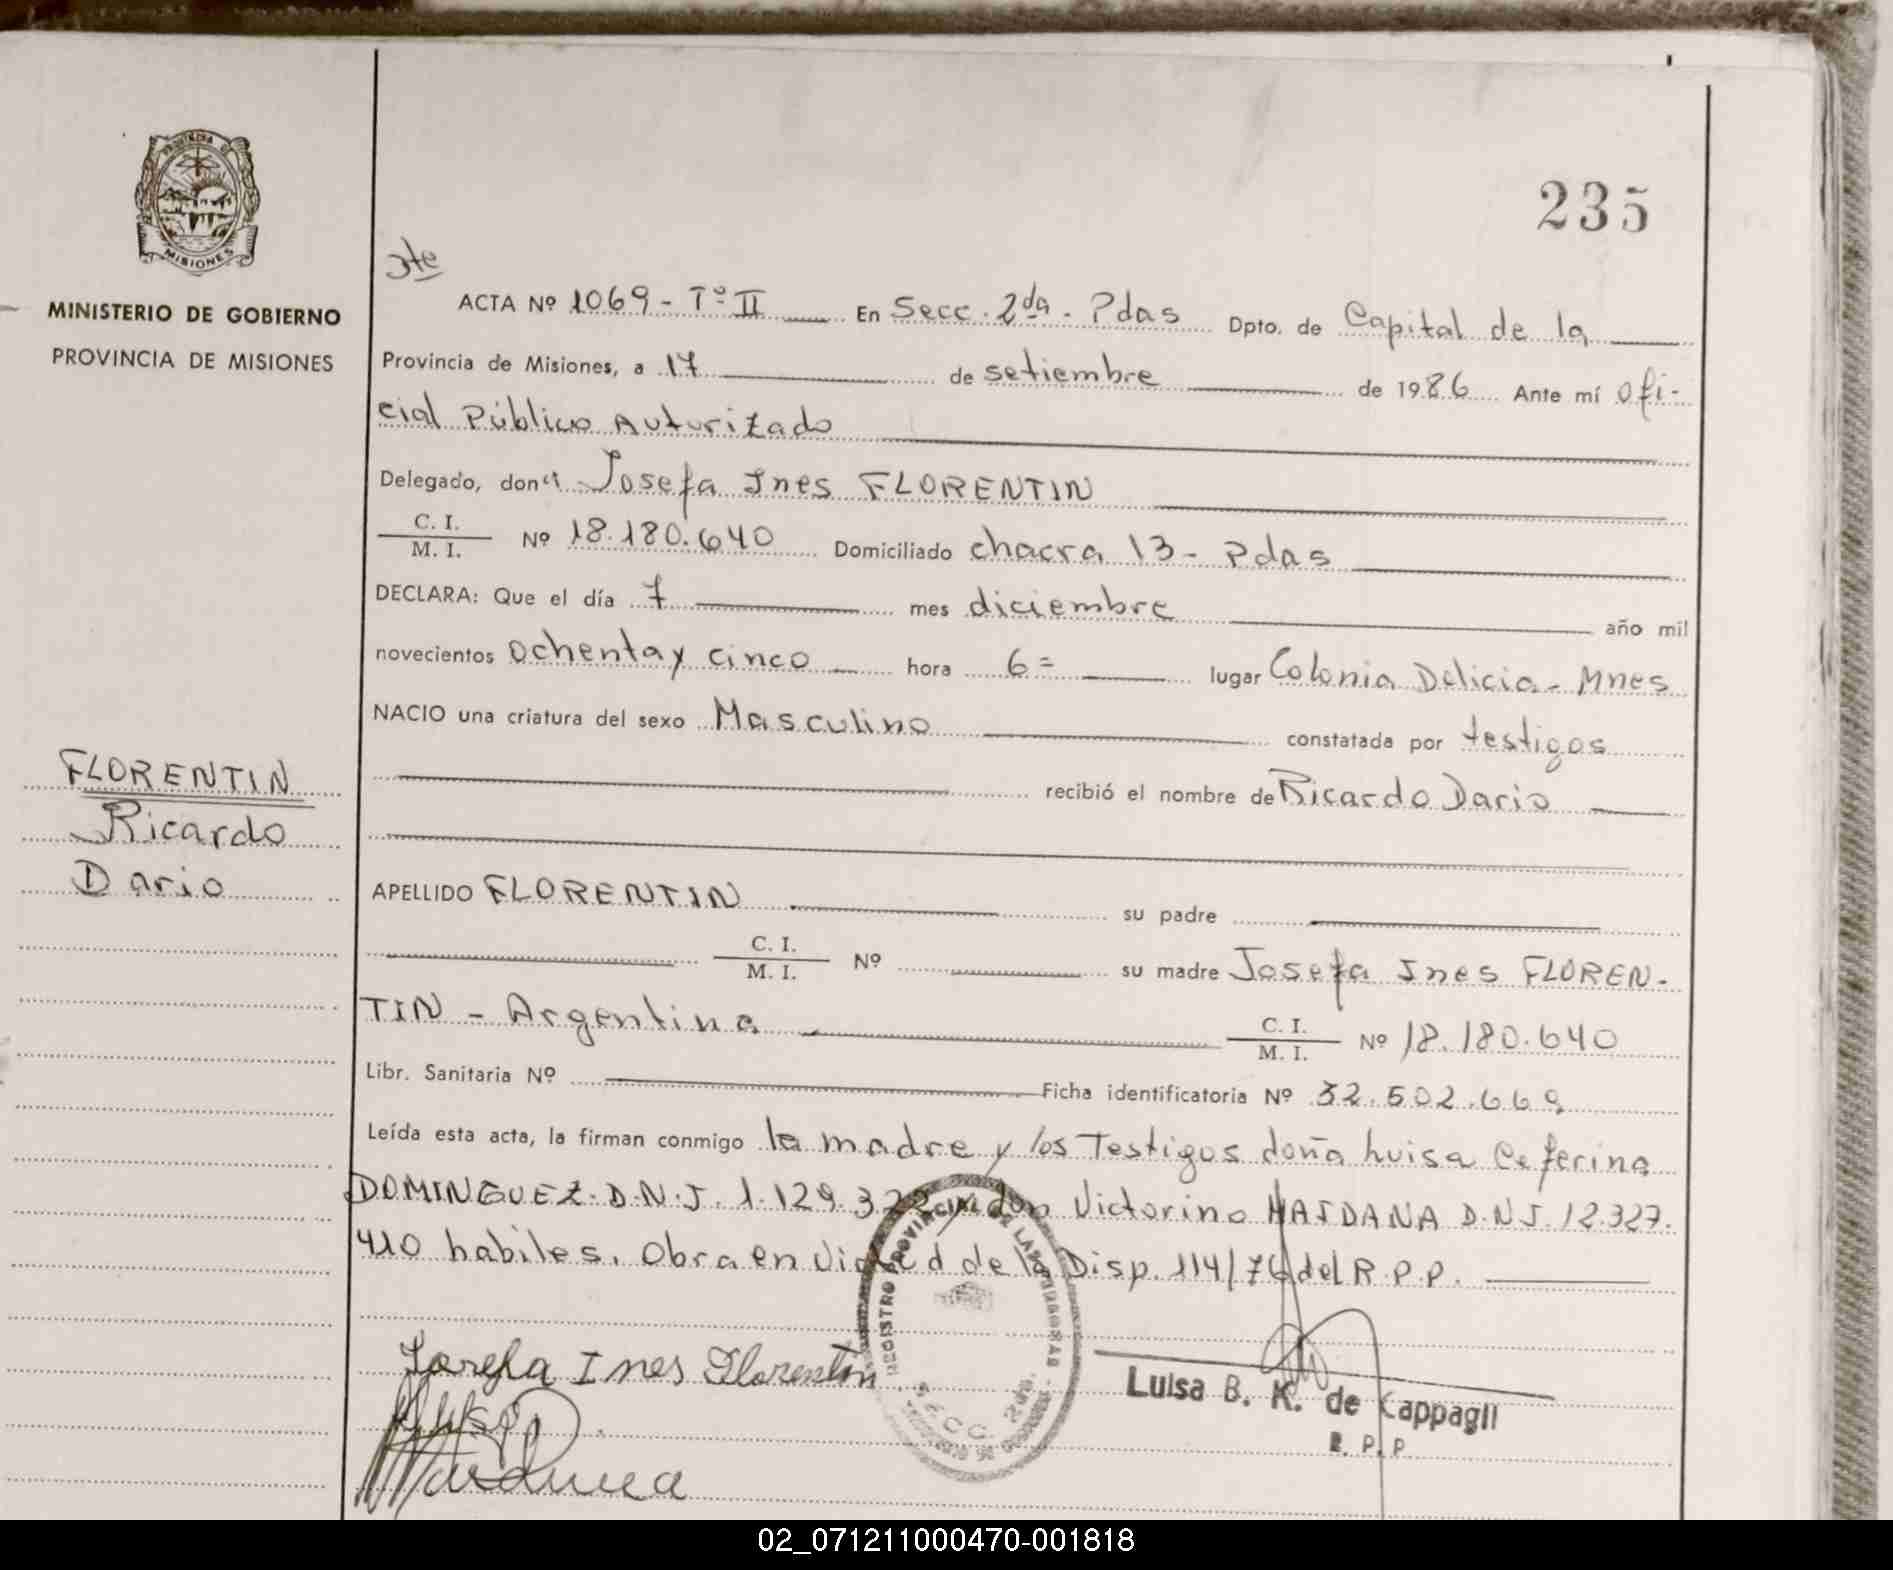 235
PROVINCIA DE
MISIONES
MINISTERIO DE GOBIERNO
PROVINCIA DE MISIONES
ACTA Nº 1069 - Tº II En Secc. 2da. Pdas Dpto. de Capital de la
Provincia de Misiones, a 17 de setiembre de 1986 Ante mí ofi-
cial Público Autorizado
Delegado, don a Josefa Ines FLORENTIN
C. I.
M. I. Nº 18.180.640 Domiciliado chacra 13 - Pdas
DECLARA: Que el día 7 mes diciembre año mil
novecientos ochenta y cinco hora 6= lugar Colonia Delicia - Mnes
NACIO una criatura del sexo Masculino constatada por testigos
recibió el nombre de Ricardo Dario
FLORENTIN
Ricardo
Dario
APELLIDO FLORENTIN su padre
C. I.
M. I. Nº su madre Josefa Ines FLOREN-
TIN - Argentina C. I.
M. I. Nº 18.180.640
Libr. Sanitaria Nº Ficha identificatoria Nº 32.502.669
Leída esta acta, la firman conmigo la madre y los Testigos doña Luisa Ceferina
DOMINGUEZ. D.N.I. 1.129.322 y don Victorino MAIDANA D.N.I. 12.327.
410 habiles. Obra en de la Disp. 114/76 del R.P.P.
REGISTRO PROVINCIAL DE LAS PERSONAS
SECC. 2da.
Josefa Ines Florentin
Luisa B. K. de Cappagli
R. P. P.
02_071211000470-001818